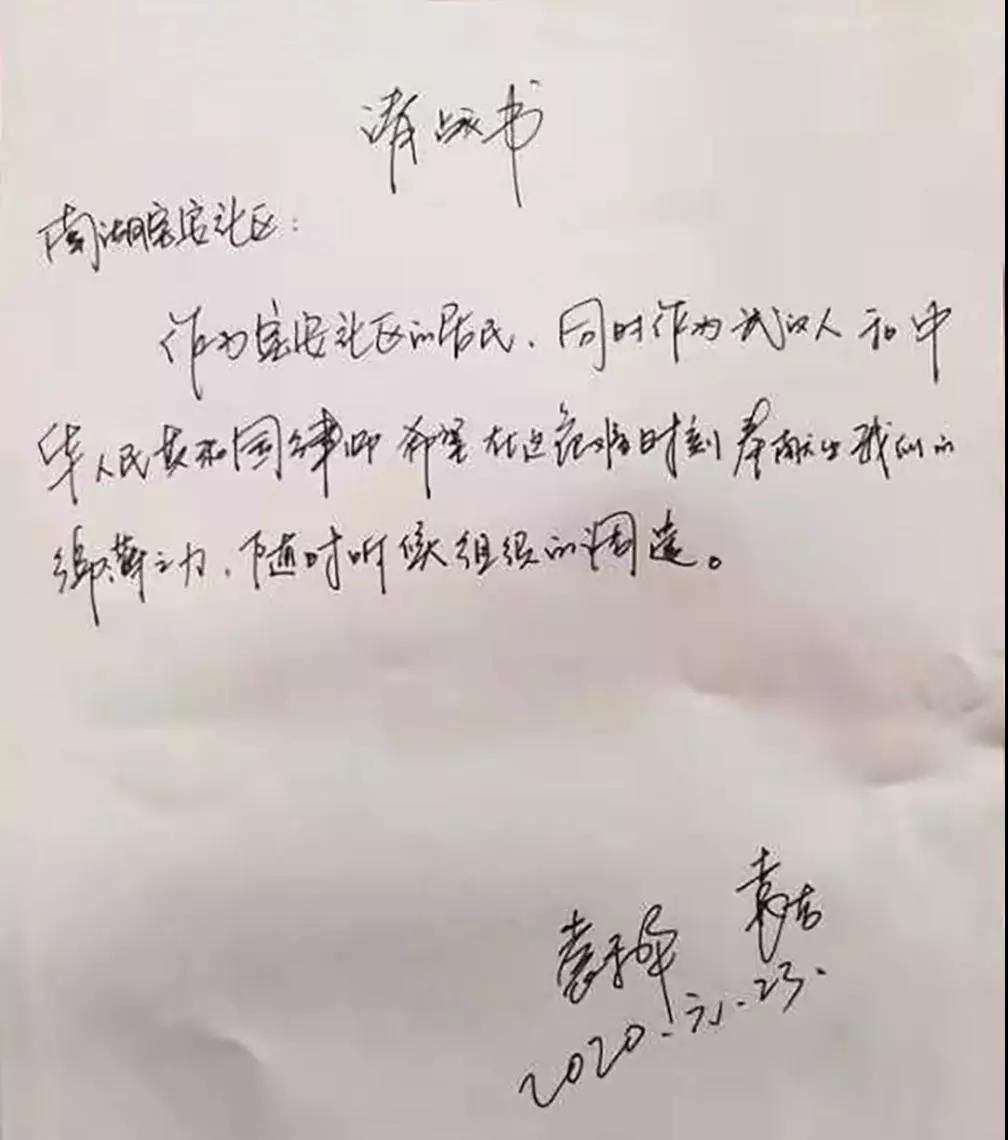 请战书
南湖宝安社区：
作为宝安社区的居民、同时作为武汉人和中
华人民共和国律师希望在这艰难时刻奉献出我们的
绵薄之力、随时听候组织的调遣。
袁
袁
2020.元.23.